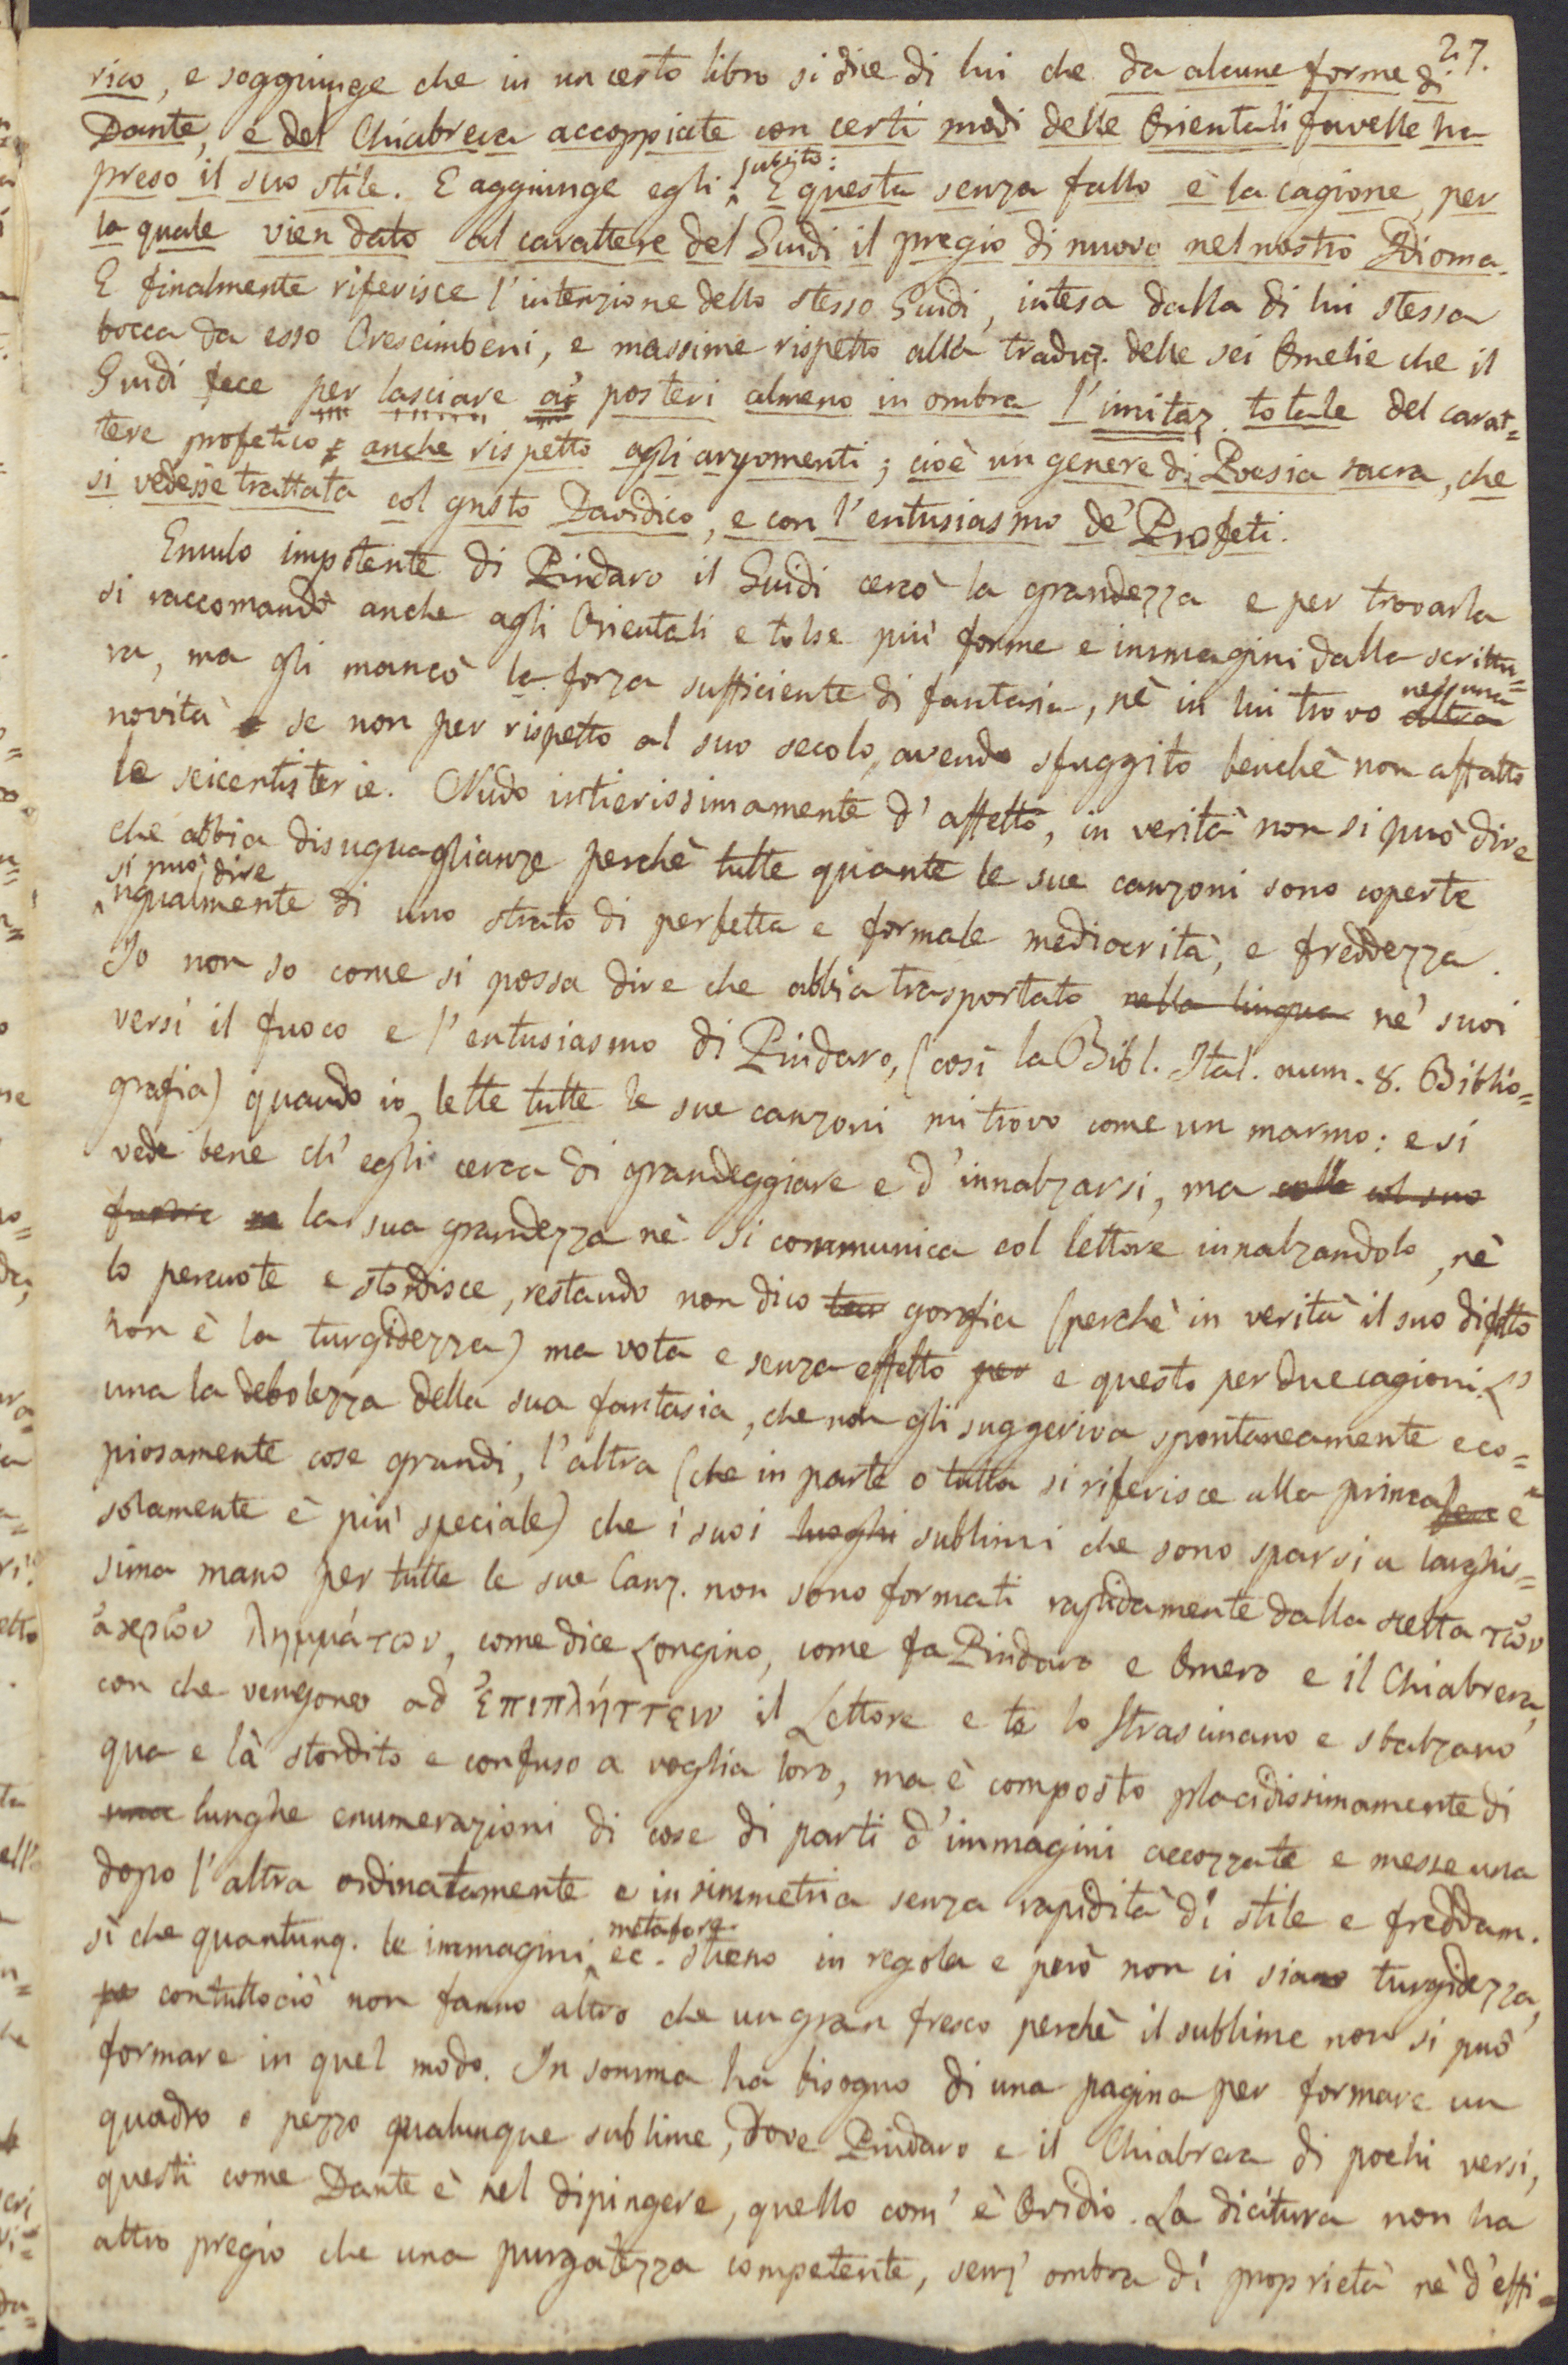 27.
rico, e soggiunge che in un certo libro si dice di lui che da alcune forme di
Dante, e del Chiabrera accoppiate con certi modi delle Orientali favelle ha
preso il suo stile. E aggiunge egli subito: E questa senza fallo è la cagione, per
la quale vien dato al carattere del Guidi il pregio di nuovo nel nostro Idioma.
E finalmente riferisce l'intenzione dello stesso Guidi, intesa dalla di lui stessa
bocca da esso Crescimbeni, e massime rispetto alla traduz. delle sei Omelie che il
Guidi fece per lasciare a' posteri almeno in ombra l'imitaz. totale del carat=
tere profetico anche rispetto agli argomenti; cioè un genere di Poesia sacra, che
si vedesse trattata col gusto Davidico, e con l'entusiasmo de' Profeti.
Emulo impotente di Pindaro il Guidi cercò la grandezza e per trovarla
si raccomandò anche agli Orientali e tolse più forme e immagini dalla scrittu=
ra, ma gli mancò la forza sufficiente di fantasia, nè in lui trovo altra nessuna
novità se non per rispetto al suo secolo, avendo sfuggito benchè non affatto
le seicentisterie. Nudo intierissimamente d'affetto, in verità non si può dire
che abbia disuguaglianze perchè tutte quante le sue canzoni sono coperte
si può dire
ugualmente di uno strato di perfetta e formale mediocrità, e freddezza.
Io non so come si possa dire che abbia trasportato nella lingua ne' suoi
versi il fuoco e l'entusiasmo di Pindaro, (così la Bibl. Ital. num. 8. Biblio=
grafia) quando io, lette tutte le sue canzoni mi trovo come un marmo: e si
vede bene ch'egli cerca di grandeggiare e d'innalzarsi, ma colle col suo
furore la sua grandezza nè si communica col lettore innalzandolo, nè
lo percuote e stordisce, restando non dico gonfia (perchè in verità il suo difetto
non è la turgidezza) ma vota e senza effetto per e questo per due cagioni. L'
una la debolezza della sua fantasia, che non gli suggeriva spontaneamente e co=
piosamente cose grandi, l'altra (che in parte o tutta si riferisce alla prima e
solamente è più speciale) che i suoi luoghi sublimi che sono sparsi a larghis=
sima mano per tutte le sue Canz. non sono formati rapidamente dalla scelta τῶν
ἄκρων λημμάτων, come dice Longino, come fa Pindaro e Omero e il Chiabrera,
con che vengono ad ἐπιπλήττειν il Lettore e lo strascinano e sbalzano
qua e là stordito e confuso a voglia loro, ma è composto placidissimamente di
una lunghe enumerazioni di cose di parti d'immagini accozzate e messe una
dopo l'altra ordinatamente e in simmetria senza rapidità di stile e freddam.
sì che quantunq. le immagini metafore ec. stieno in regola e però non ci siano turgidezza,
contuttociò non fanno altro che un gran fresco perchè il sublime non si può
formare in quel modo. In somma ha bisogno di una pagina per formare un
quadro o pezzo qualunque sublime, dove Pindaro e il Chiabrera di pochi versi,
questi come Dante è nel dipingere, quello com'è Ovidio. La dicitura non ha
altro pregio che una purgatezza competente, senz'ombra di proprietà nè d'effi=